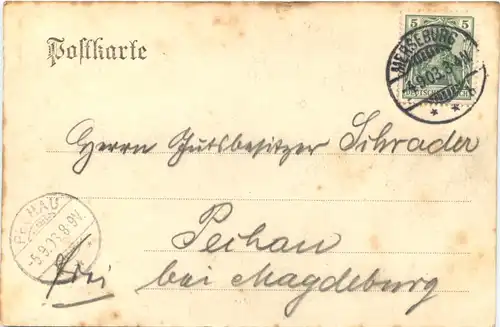 Postkarte
5 5
MERSEBURG
4.9.03. 8-9N.
DEUTSCHES REICH
Herrn Gutsbesitzer Schrader
Pechau
bei Magdeburg
frei
PECHAU
5.9.03. 8-9V.